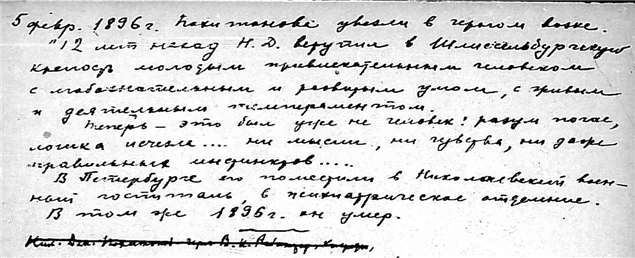 5 февр. 1896 г. Похитонова увезли в черном возке.
"12 лет назад Н. Д. вступил в Шлиссельбургскую
крепость молодым привлекательным человеком
с любознательным и развитым умом, с живым
и деятельным темпераментом.
Теперь – это был уже не человек: разум погас,
логика исчезла.... ни мысли, ни чувства, ни даже
правильных инстинктов.....
В Петербурге его поместили в Николаевский воен-
ный госпиталь, в психиатрическое отделение.
В том же 1896 г. он умер.